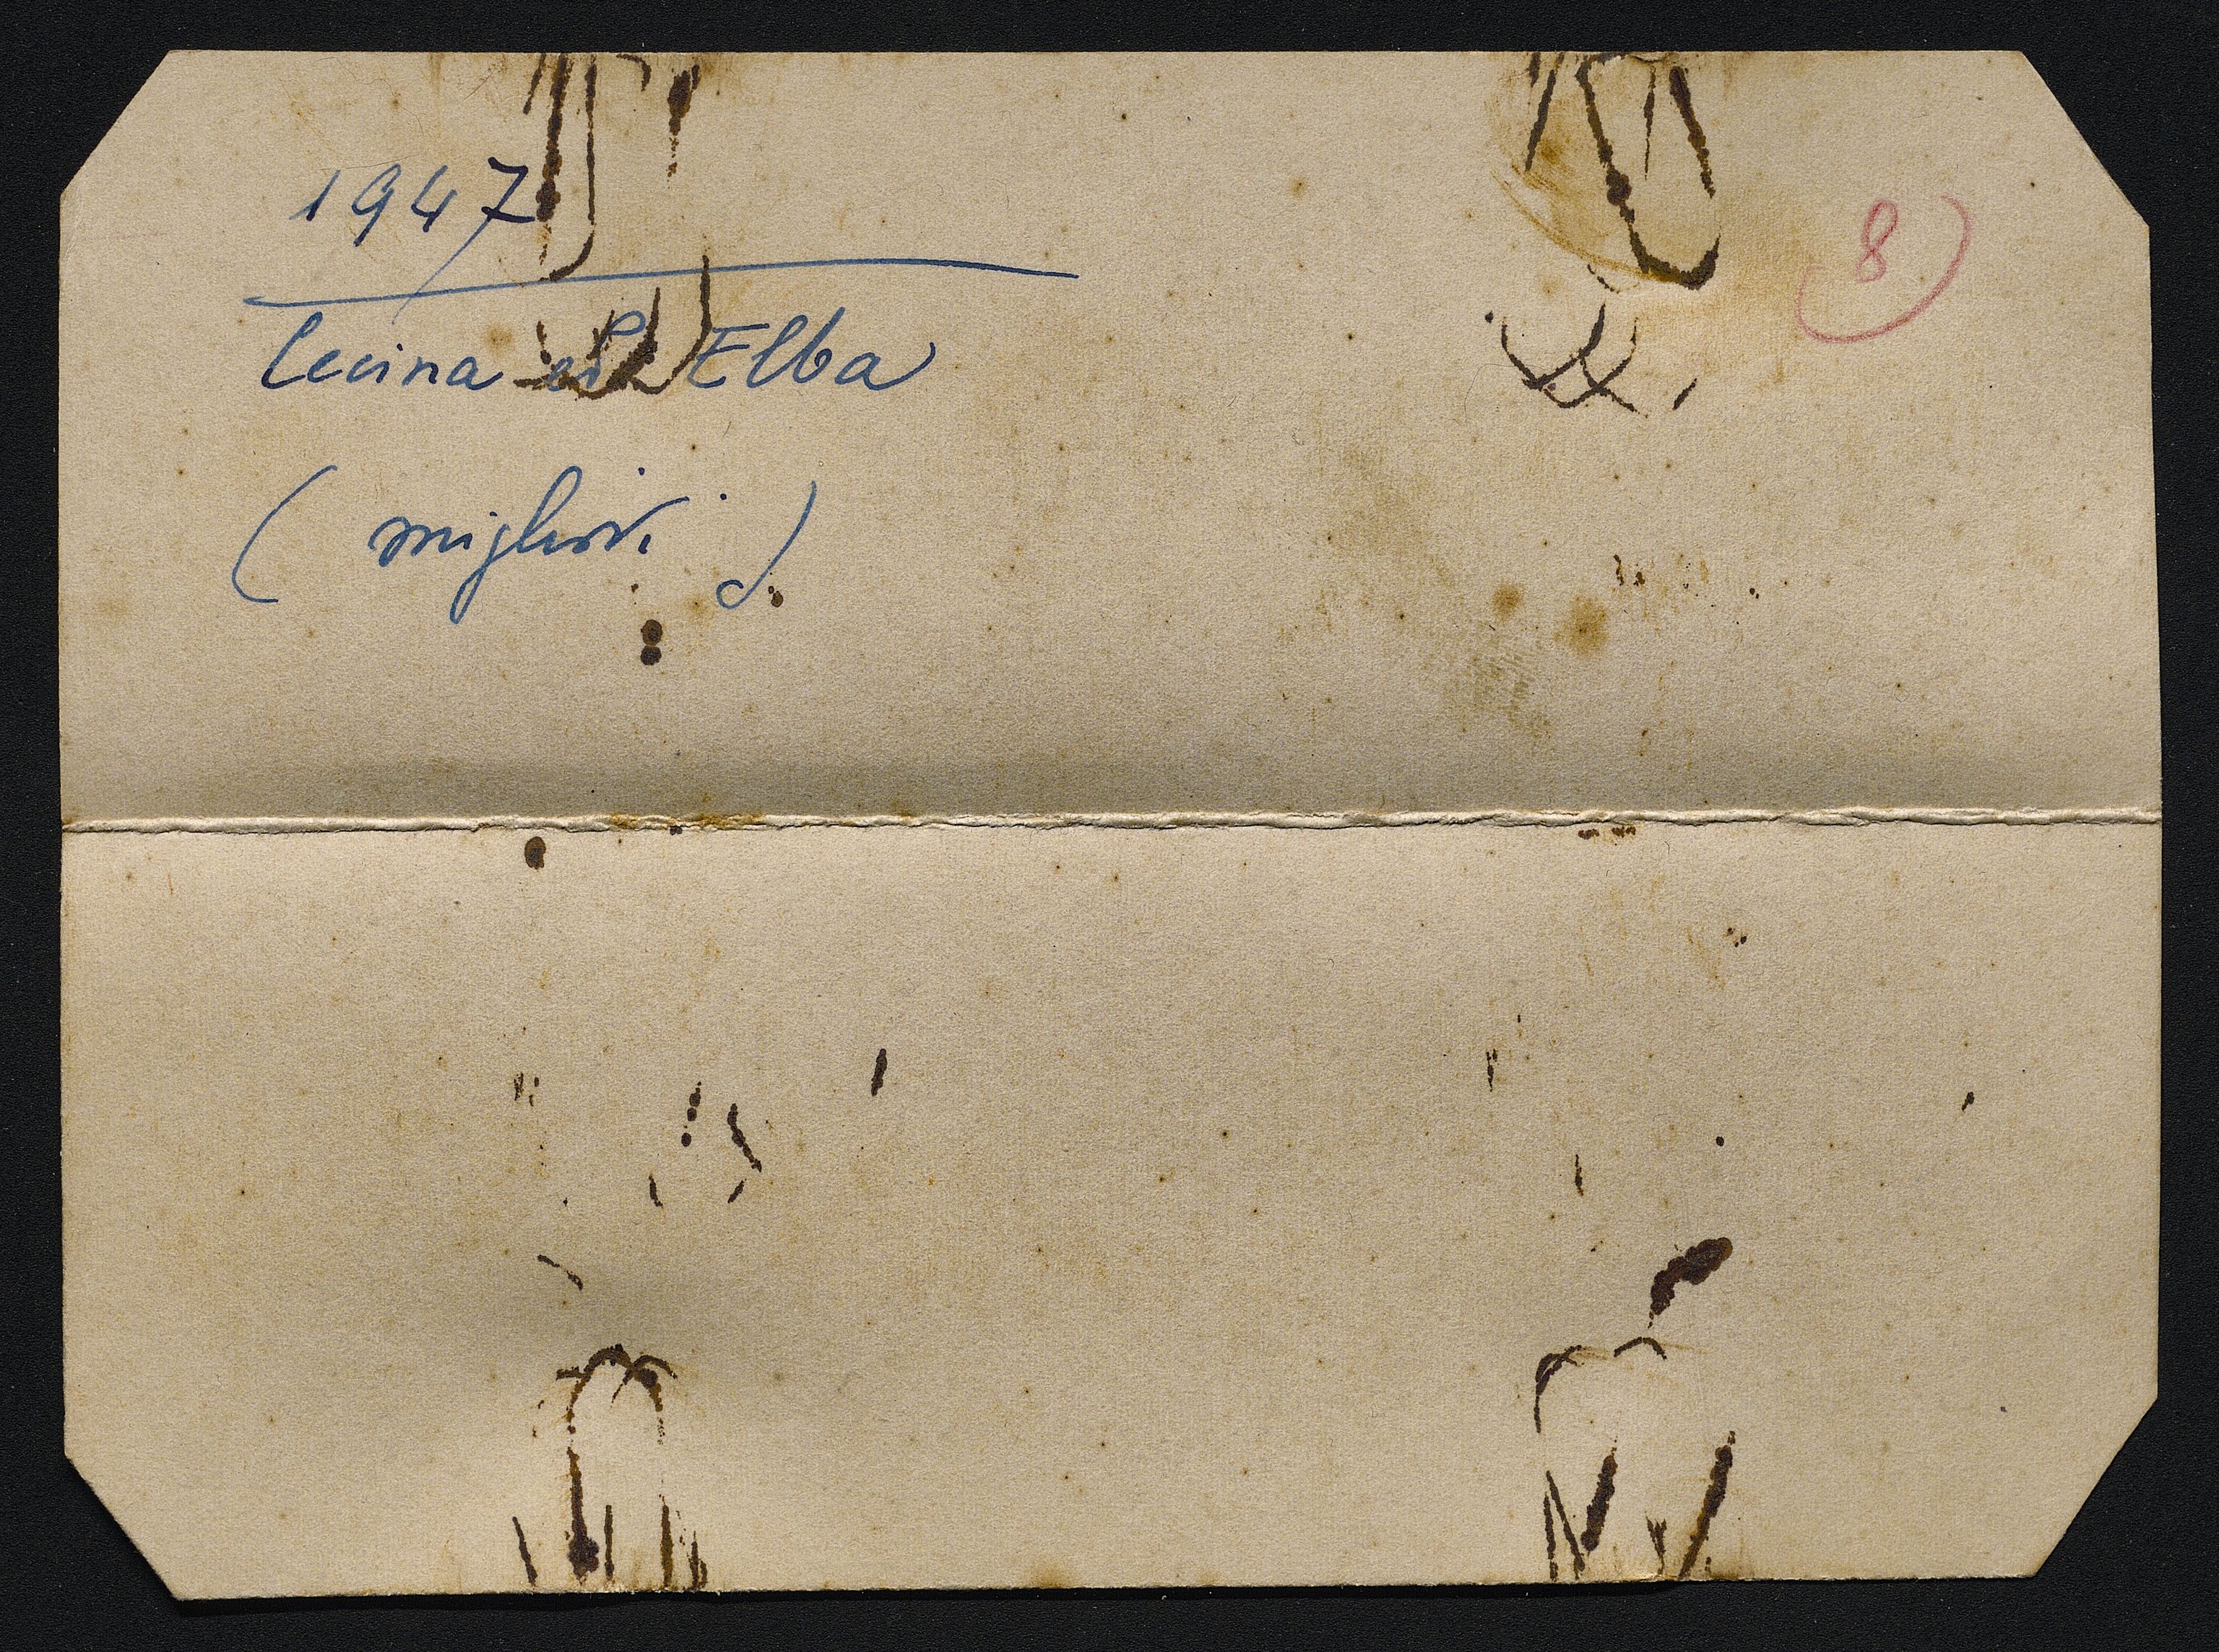 1947
8)
Cecina ed Elba
(migliori)